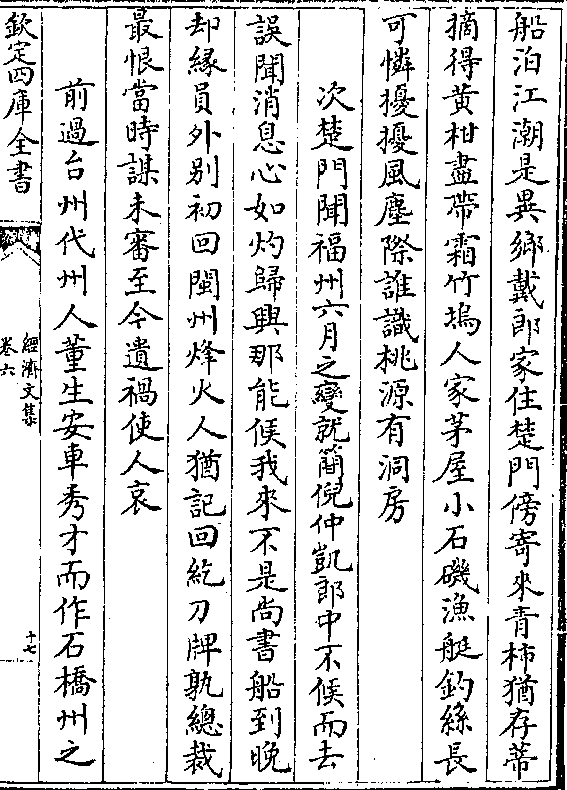 船泊江潮是異鄉戴郎家住楚門傍寄來青柿猶存蒂
摘得黄柑盡帶霜竹塢人家茅屋小石磯漁艇釣絲長
可憐擾擾風塵際誰識桃源有洞房
次楚門聞福州六月之變就簡倪仲凱郎中不候而去
誤聞消息心如灼歸興那能候我來不是尚書船到晚
却緣員外别初回閩州烽火人猶記回紇刀牌孰總裁
最恨當時謀未審至今遺禍使人哀
前過台州代州人董生安車秀才而作石橋州之
欽定四庫全書
經濟文集
卷六
十七